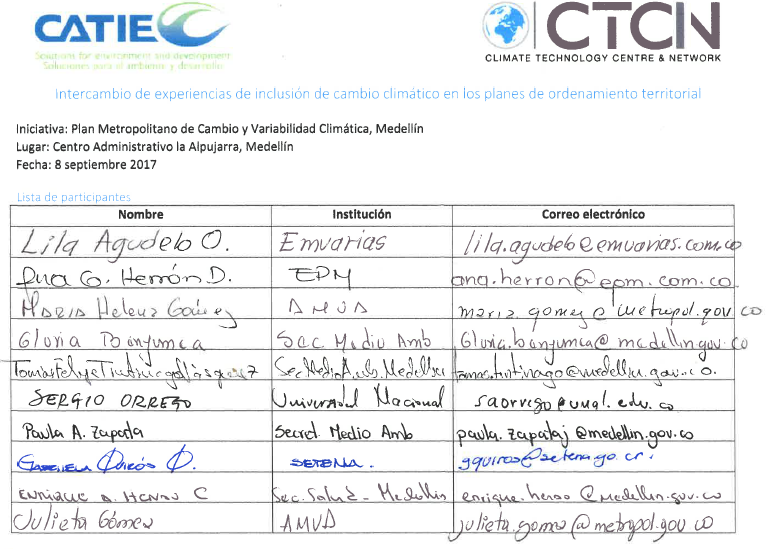 CATIE
Solutions for environment and development
Soluciones para el ambiente y desarrollo
CTCN
CLIMATE TECHNOLOGY CENTRE & NETWORK
Intercambio de experiencias de inclusión de cambio climático en los planes de ordenamiento territorial
Iniciativa: Plan Metropolitano de Cambio y Variabilidad Climática, Medellín
Lugar: Centro Administrativo la Alpujarra, Medellín
Fecha: 8 septiembre 2017
Lista de participantes
Nombre Institución Correo electrónico
Lila Agudelo O. Emvarias lila.agudelo@emvarias.com.co
Ana G. Herrón D. EPM ana.herron@epm.com.co
Maria Helena Gómez AMVA maria.gomez@metropol.gov co
Gloria Banyumea Sec. Medio Amb Gloria.banyumea@medellin.gov.co
Tomas Felipe Sec. Medio Amb. Medellin
SERGIO ORREGO Universidad Nacional saorrego@unal.edu.co
Paula A. Zapata Secret. Medio Amb paula.zapataj@medellin.gov.co
Gabriela Quirós Q. SETENA. gquiros@setena.go.cr.
ENRIQUE A. HENAO C Sec. Salud - Medellin enrique.henao@medellin.gov.co
Julieta Gómez AMVA julieta.gomez@metropol.gov co